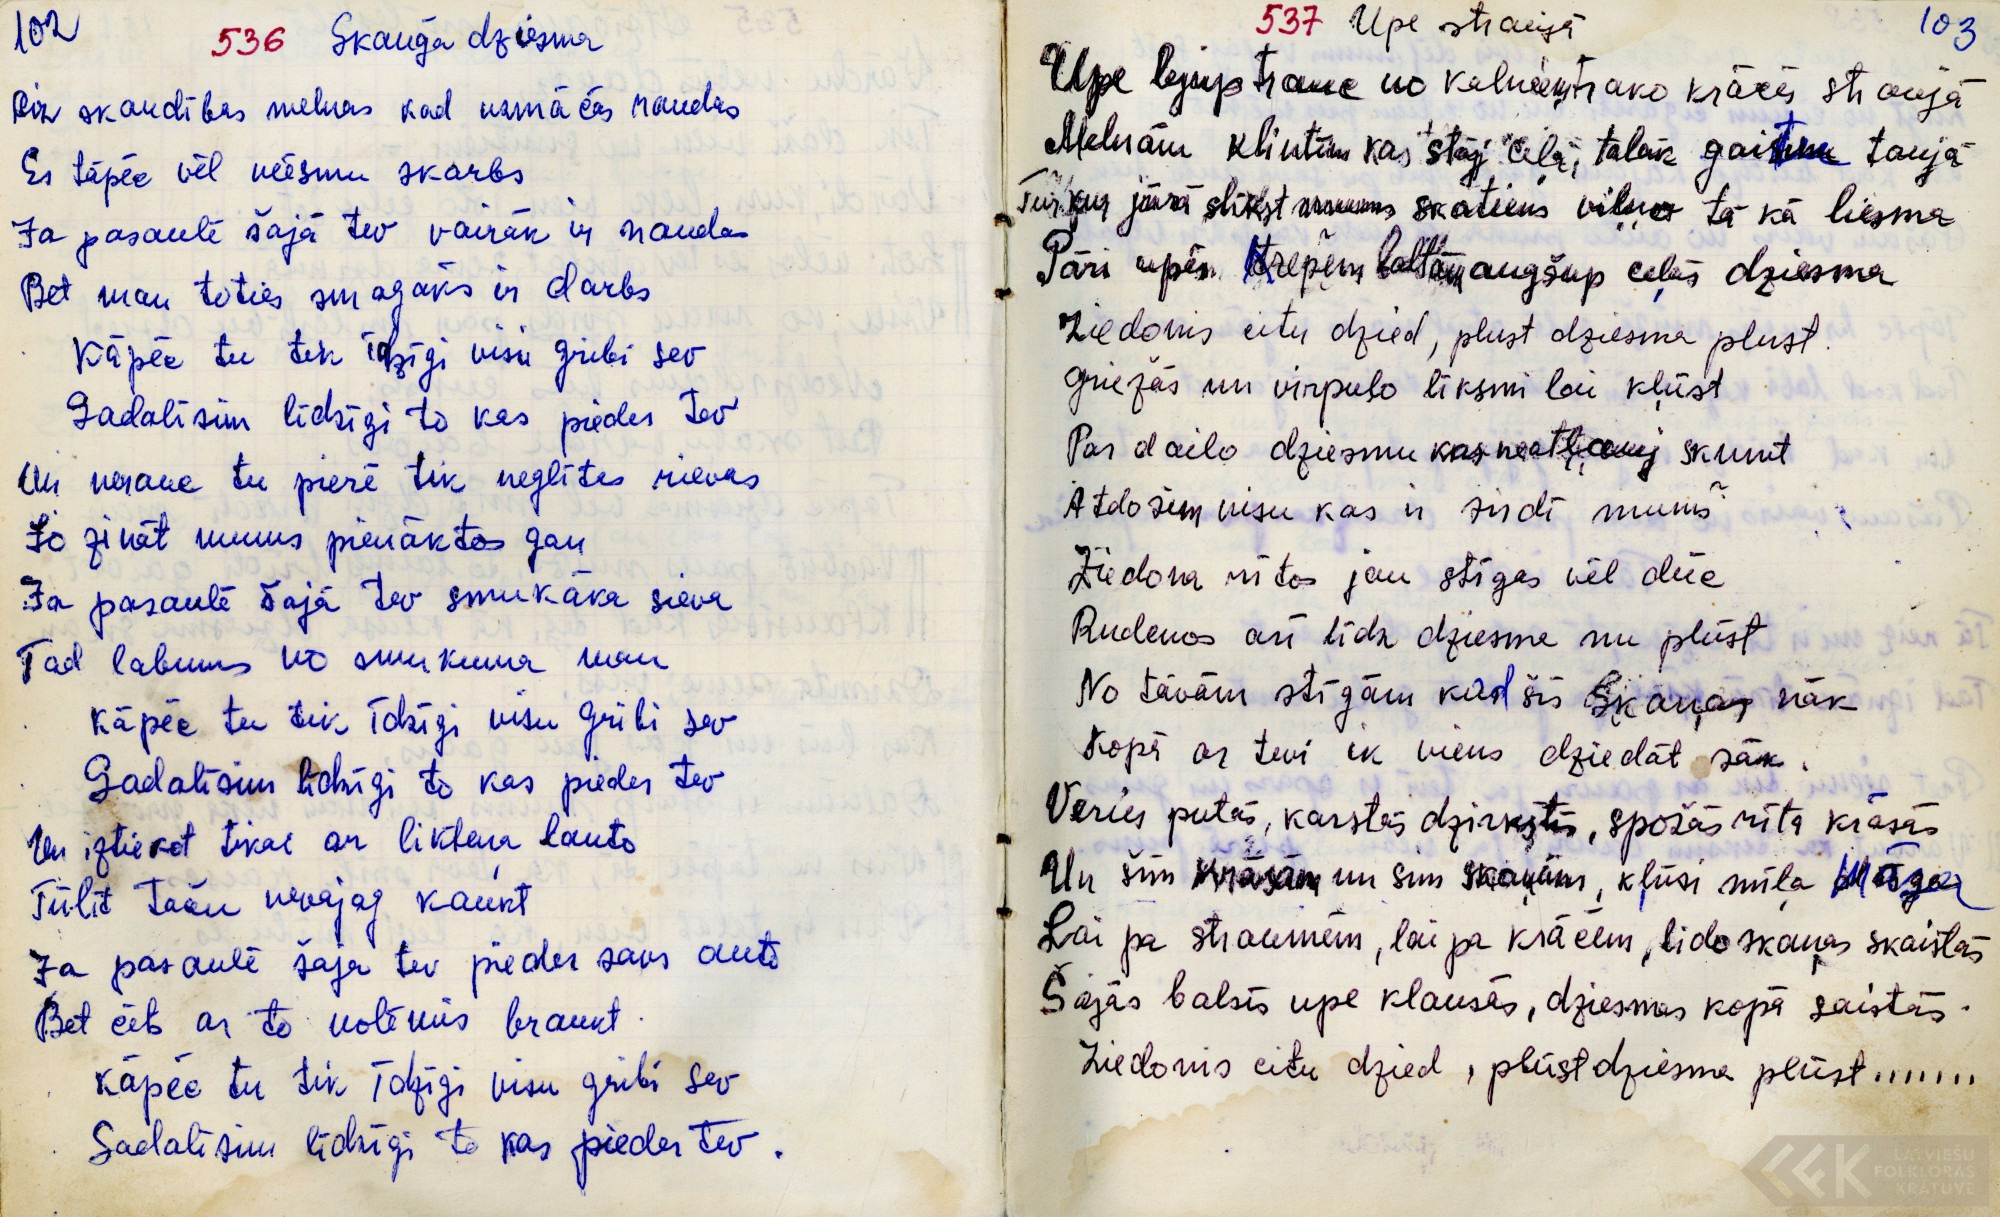 102
536 Skauģa dziesma
Aiz skaudības melnas kad uzmācās raudas
Es tāpēc vēl neesmu skarbs
Ja pasaulē šajā tev vairāk ir naudas
Bet man toties smagāks ir darbs
Kāpēc tu tik īdzīgi visu gribi sev
Sadalīsim līdzīgi to kas pieder tev
Un nerauc tu pierē tik neglītas rievas
To zināt mums pienāktos gan
Ja pasaulē šajā tev smukāka sieva
Tad labums no smukuma man
Kāpēc tu tik īdzīgi visu gribi sev
Sadalīsim līdzīgi to kas pieder tev
Un iztiekot tikai ar likteņa lauto
Tūlīt taču nevajag kaukt
Ja pasaulē šaja tev pieder savs auto
Bet cits ar to nolēmis braukt.
Kāpēc tu tik īdzīgi visu gribi sev
Sadalīsim līdzīgi to kas pieder tev.
537 Upe straujā
103
Upe lejup trauc no kalniem, trako krācēs straujā
Melnām klintīm kas stāj ceļā, tālāk gaitu taujā
Tur kur jūrā slīkst mums skatiens viļņo tā kā liesma
Pāri upēs krepēm baltām augšup ceļas dziesma
Ziedonis citu dzied, plūst dziesma plūst.
griežās un virpuļo līksmi lai kļūst
Par daiļo dziesmu kas neatļauj skumt
Atdosim visu kas ir sirdī mums
Ziedoņa rītos jau stīgas vēl dūc
Rudenos arī līdz dziesma nu plūst
No tāvām stīgām kad šīs skaņas nāk
Kopā ar tevi ik viens dziedāt sāk.
Veries putās, karstās dzirkstīs, spožās rīta krāsās
Un šīm krāsām un šīm skaņām, kļūsi mīļa Māga
Lai pa straumēm, lai pa krācēm, lido skaņas skaistās
Šajās balsīs upe klausās, dziesmas kopā saistās.
Ziedonis citu dzied, plūst dziesma plūst.......
LATVIEŠU
FOLKLORAS
KRĀTUVE